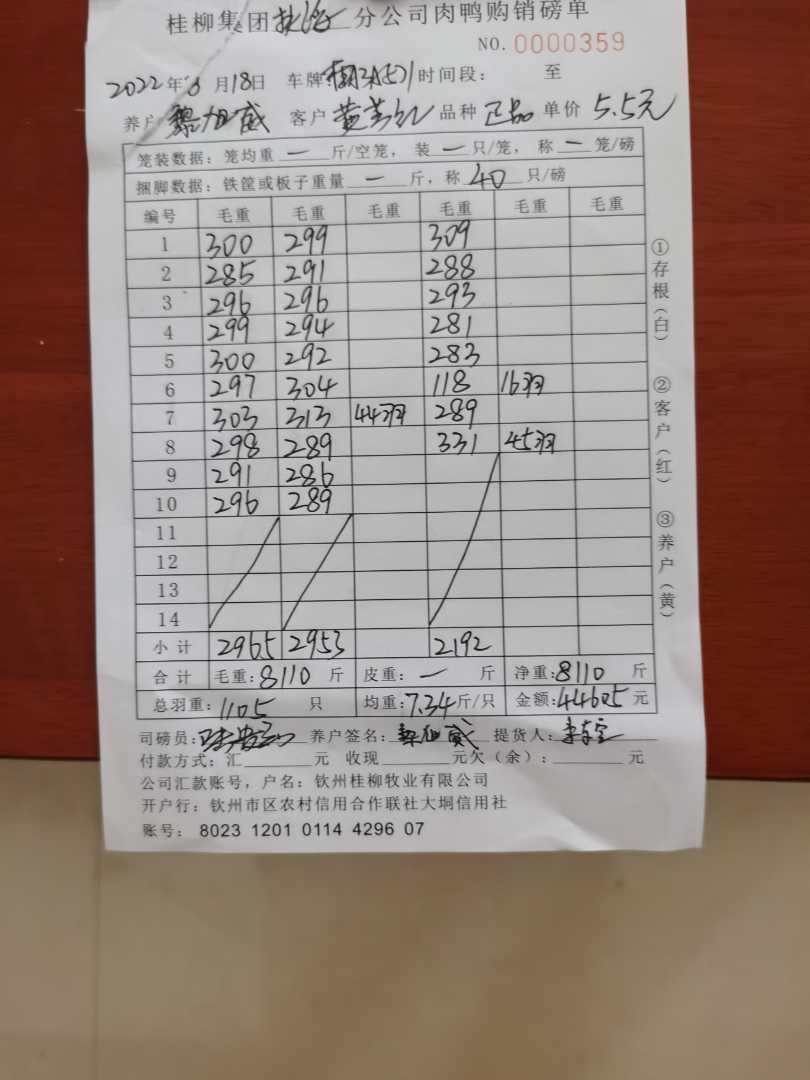 桂柳集团 分公司肉鸭购销磅单
NO. 0000359
2022年 月18日 车牌 时间段: 至
养户 黎旭威 客户 黄 红 品种 正品 单价 5.5元
笼装数据: 笼均重 一 斤/空笼, 装 一 只/笼, 称 一 笼/磅
捆脚数据: 铁筐或板子重量 一 斤, 称 40 只/磅
编号 毛重 毛重 毛重 毛重 毛重 毛重
1 300 299 309
2 285 291 288
3 296 296 293
4 299 294 281
5 300 292 283
6 297 304 118 16羽
7 303 313 44羽 289
8 298 289 331 45羽
9 291 286
10 296 289
11
12
13
14
小计 2965 2953 2192
合计 毛重: 8110 斤 皮重: 一 斤 净重: 8110 斤
总羽重: 1105 只 均重: 7.34 斤/只 金额: 44605 元
司磅员: 养户签名: 黎旭威 提货人:
付款方式: 汇 元 收现 元欠(余): 元
公司汇款账号, 户名: 钦州桂柳牧业有限公司
开户行: 钦州市区农村信用合作联社大垌信用社
账号: 8023 1201 0114 4296 07
①存根(白)
②客户(红)
③养户(黄)